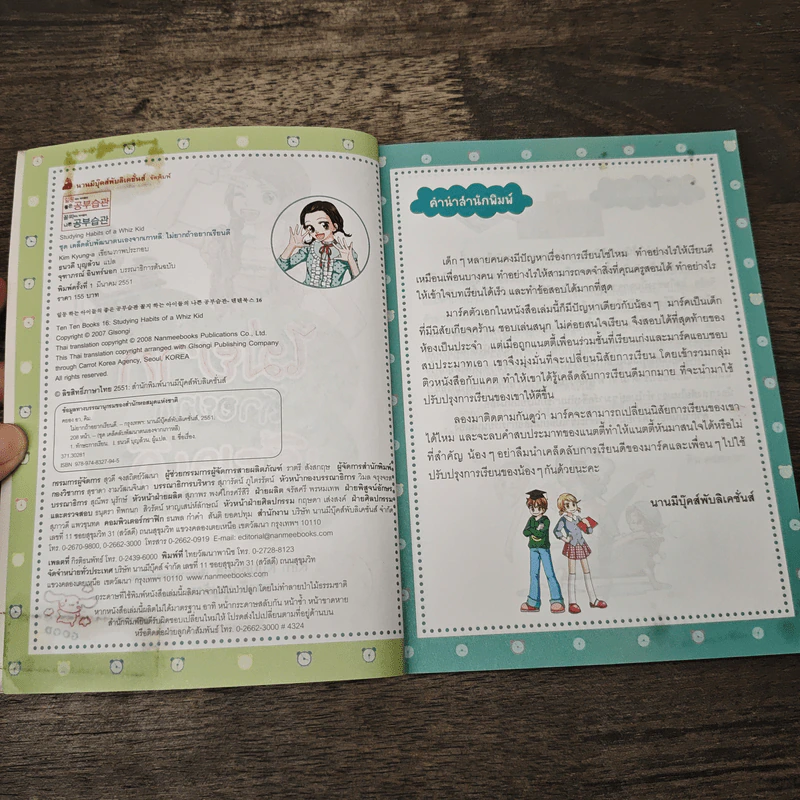 นานมีบุ๊คส์พับลิเคชั่นส์ จัดพิมพ์
공부습관
공부습관
Studying Habits of a Whiz Kid
ชุด เคล็ดลับพัฒนาตนเองจากเกาหลี: ไม่ยากถ้าอยากเรียนดี
Kim Kyung-a เขียนภาพประกอบ
ธนวดี บุญล้วน แปล
จุฑาภรณ์ อินทร์นอก บรรณาธิการต้นฉบับ
พิมพ์ครั้งที่ 1 มีนาคม 2551
ราคา 155 บาท
Ten Ten Books 16: Studying Habits of a Whiz Kid
Copyright © 2007 Glsongi
Thai translation copyright © 2008 Nanmeebooks Publications Co., Ltd.
This Thai translation copyright arranged with Glsongi Publishing Company
through Carrot Korea Agency, Seoul, KOREA
All rights reserved.
© ลิขสิทธิ์ภาษาไทย 2551: สำนักพิมพ์นานมีบุ๊คส์พับลิเคชั่นส์
ข้อมูลทางบรรณานุกรมของสำนักหอสมุดแห่งชาติ
คยองอา, คิม.
ไม่ยากถ้าอยากเรียนดี.-- กรุงเทพฯ: นานมีบุ๊คส์พับลิเคชั่นส์, 2551.
208 หน้า.-- (ชุด เคล็ดลับพัฒนาตนเองจากเกาหลี)
1. ทักษะการเรียน. I. ธนวดี บุญล้วน, ผู้แปล. II. ชื่อเรื่อง.
371.30281
ISBN 978-974-8327-94-5
เลขที่ 11 ซอยสุขุมวิท 31 (สวัสดี) ถนนสุขุมวิท แขวงคลองเตยเหนือ เขตวัฒนา กรุงเทพฯ 10110
โทร. 0-2670-9800, 0-2662-3000 โทรสาร 0-2662-0919 E-mail: editorial@nanmeebooks.com
เพลตที่ กิรติอนพัทธ์ โทร. 0-2439-6000 พิมพ์ที่ ไทยวัฒนาพานิช โทร. 0-2728-8123
จัดจำหน่ายทั่วประเทศ บริษัท นานมีบุ๊คส์ จำกัด เลขที่ 11 ซอยสุขุมวิท 31 (สวัสดี) ถนนสุขุมวิท
แขวงคลองเตยเหนือ เขตวัฒนา กรุงเทพฯ 10110 www.nanmeebooks.com
กระดาษที่ใช้พิมพ์หนังสือเล่มนี้ผลิตมาจากไม้ในป่าปลูก โดยไม่ทำลายป่าไม้ธรรมชาติ
หากหนังสือเล่มนี้ผลิตไม่ได้มาตรฐาน อาทิ หน้ากระดาษสลับกัน หน้าซ้ำ หน้าขาดหาย
สำนักพิมพ์ยินดีรับผิดชอบเปลี่ยนใหม่ให้ โปรดส่งไปเปลี่ยนตามที่อยู่ด้านบน
หรือติดต่อฝ่ายลูกค้าสัมพันธ์ โทร. 0-2662-3000 # 4324
คำนำสำนักพิมพ์
เด็กๆ หลายคนคงมีปัญหาเรื่องการเรียนใช่ไหม ทำอย่างไรให้เรียนดี
เหมือนเพื่อนบางคน ทำอย่างไรให้สามารถจดจำสิ่งที่คุณครูสอนได้ ทำอย่างไร
ให้เข้าใจบทเรียนได้เร็ว และทำข้อสอบได้มากที่สุด
มาร์คตัวเอกในหนังสือเล่มนี้ก็มีปัญหาเดียวกับน้องๆ มาร์คเป็นเด็ก
ที่มีนิสัยเกียจคร้าน ชอบเล่นสนุก ไม่ค่อยสนใจเรียน จึงสอบได้ที่สุดท้ายของ
ห้องเป็นประจำ แต่เมื่อถูกแนตตี้เพื่อนร่วมชั้นที่เรียนเก่งและมาร์คแอบชอบ
สบประมาทเอา เขาจึงมุ่งมั่นที่จะเปลี่ยนนิสัยการเรียน โดยเข้าร่วมกลุ่ม
ติวหนังสือกับแคต ทำให้เขาได้รู้เคล็ดลับการเรียนดีมากมาย ที่จะนำมาใช้
ปรับปรุงการเรียนของเขาให้ดีขึ้น
ลองมาติดตามกันดูว่า มาร์คจะสามารถเปลี่ยนนิสัยการเรียนของเขา
ได้ไหม และจะลบคำสบประมาทของแนตตี้ทำให้แนตตี้หันมาสนใจได้หรือไม่
ที่สำคัญ น้องๆ อย่าลืมนำเคล็ดลับการเรียนดีของมาร์คและเพื่อนๆ ไปใช้
ปรับปรุงการเรียนของน้องๆ กันด้วยนะคะ
นานมีบุ๊คส์พับลิเคชั่นส์